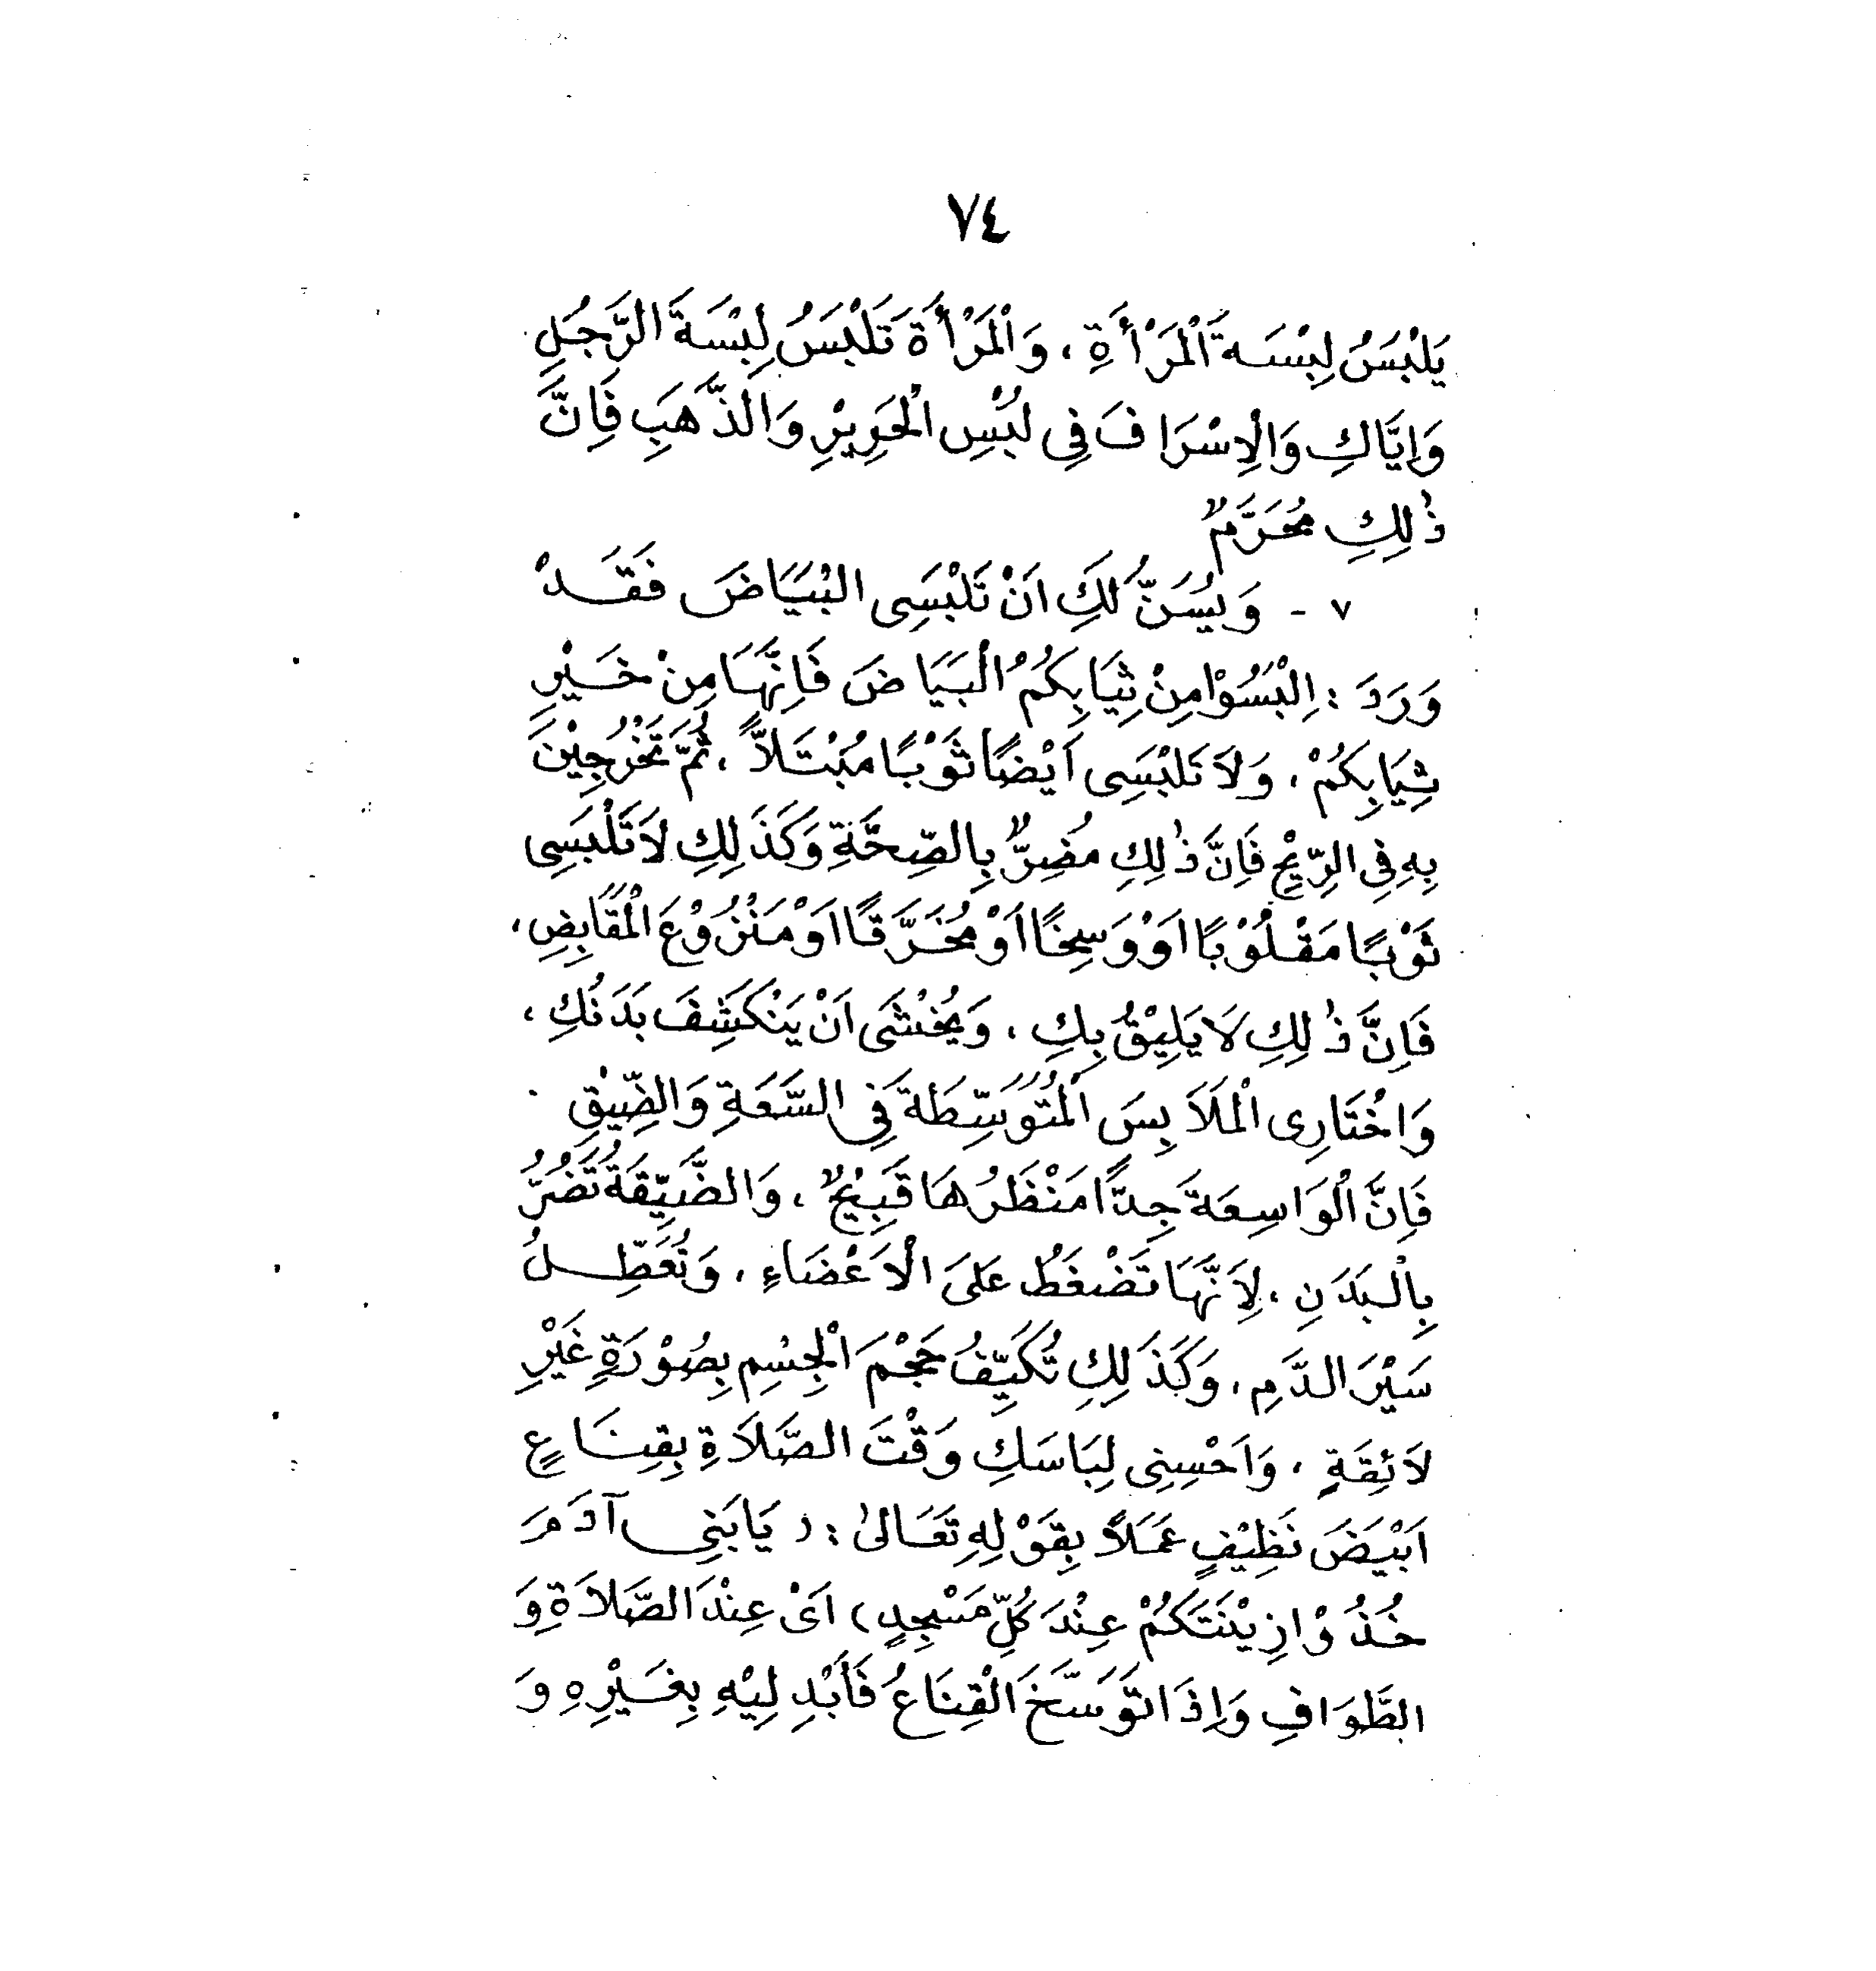 ٧٤
يَلْبَسُ لِبْسَةَ الْمَرْأَةِ، وَالْمَرْأَةَ تَلْبَسُ لِبْسَةَ الرَّجُلِ
وَاِيَّاكِ وَالْاِسْرَافَ فِى لُبْسِ الْحَرِيْرِ وَالذَّهَبِ فَاِنَّ
ذٰلِكِ مُحَرَّمٌ
٧ - وَيُسَنُّ لَكِ اَنْ تَلْبَسِى الْبَيَاضَ فَقَدْ
وَرَدَ : اِلْبَسُوْا مِنْ ثِيَابِكُمُ الْبَيَاضَ فَاِنَّهَا مِنْ خَيْرِ
ثِيَابِكُمْ، وَلَا تَلْبَسِى اَيْضًا ثَوْبًا مُبْتَلاًّ، ثُمَّ تَخْرُجِيْنَ
بِهِ فِى الرِّيْحِ فَاِنَّ ذٰلِكِ مُضِرٌّ بِالصِّحَّةِ وَكَذَلِكِ لَا تَلْبَسِى
ثَوْبًا مَقْلُوْبًا اَوْ وَسِخًا اَوْ مُخَرَّقًا اَوْ مَنْزُوْعَ الْمَقَابِضِ،
فَاِنَّ ذٰلِكِ لَا يَلِيْقُ بِكِ، وَيُخْشَى اَنْ يَنْكَشِفَ بَدَنُكِ،
وَاخْتَارِى الْمَلَابِسَ الْمُتَوَسِّطَةَ فِى السَّعَةِ وَالضِّيْقِ
فَاِنَّ الْوَاسِعَةَ جِدًّا مَنْظَرُهَا قَبِيْحٌ، وَالضَّيِّقَةُ تَضُرُّ
بِالْبَدَنِ، لِاَنَّهَا تَضْغَطُ عَلَى الْاَعْضَاءِ، وَتُعَطِّلُ
سَيْرَ الدَّمِ، وَكَذَلِكِ تُكَيِّفُ حَجْمَ الْجِسْمِ بِصُوْرَةٍ غَيْرِ
لَائِقَةٍ، وَاَحْسِنِى لِبَاسَكِ وَقْتَ الصَّلَاةِ بِقِنَاعٍ
اَبْيَضَ نَظِيْفٍ عَمَلاً بِقَوْلِهِ تَعَالىٰ : (يَابَنِى آدَمَ
خُذُوْا زِيْنَتَكُمْ عِنْدَ كُلِّ مَسْجِدٍ) اَىْ عِنْدَ الصَّلَاةِ وَ
الطَّوَافِ وَاِذَا تَوَسَّخَ الْقِنَاعُ فَأَبْدِلِيْهِ بِغَيْرِهِ وَ